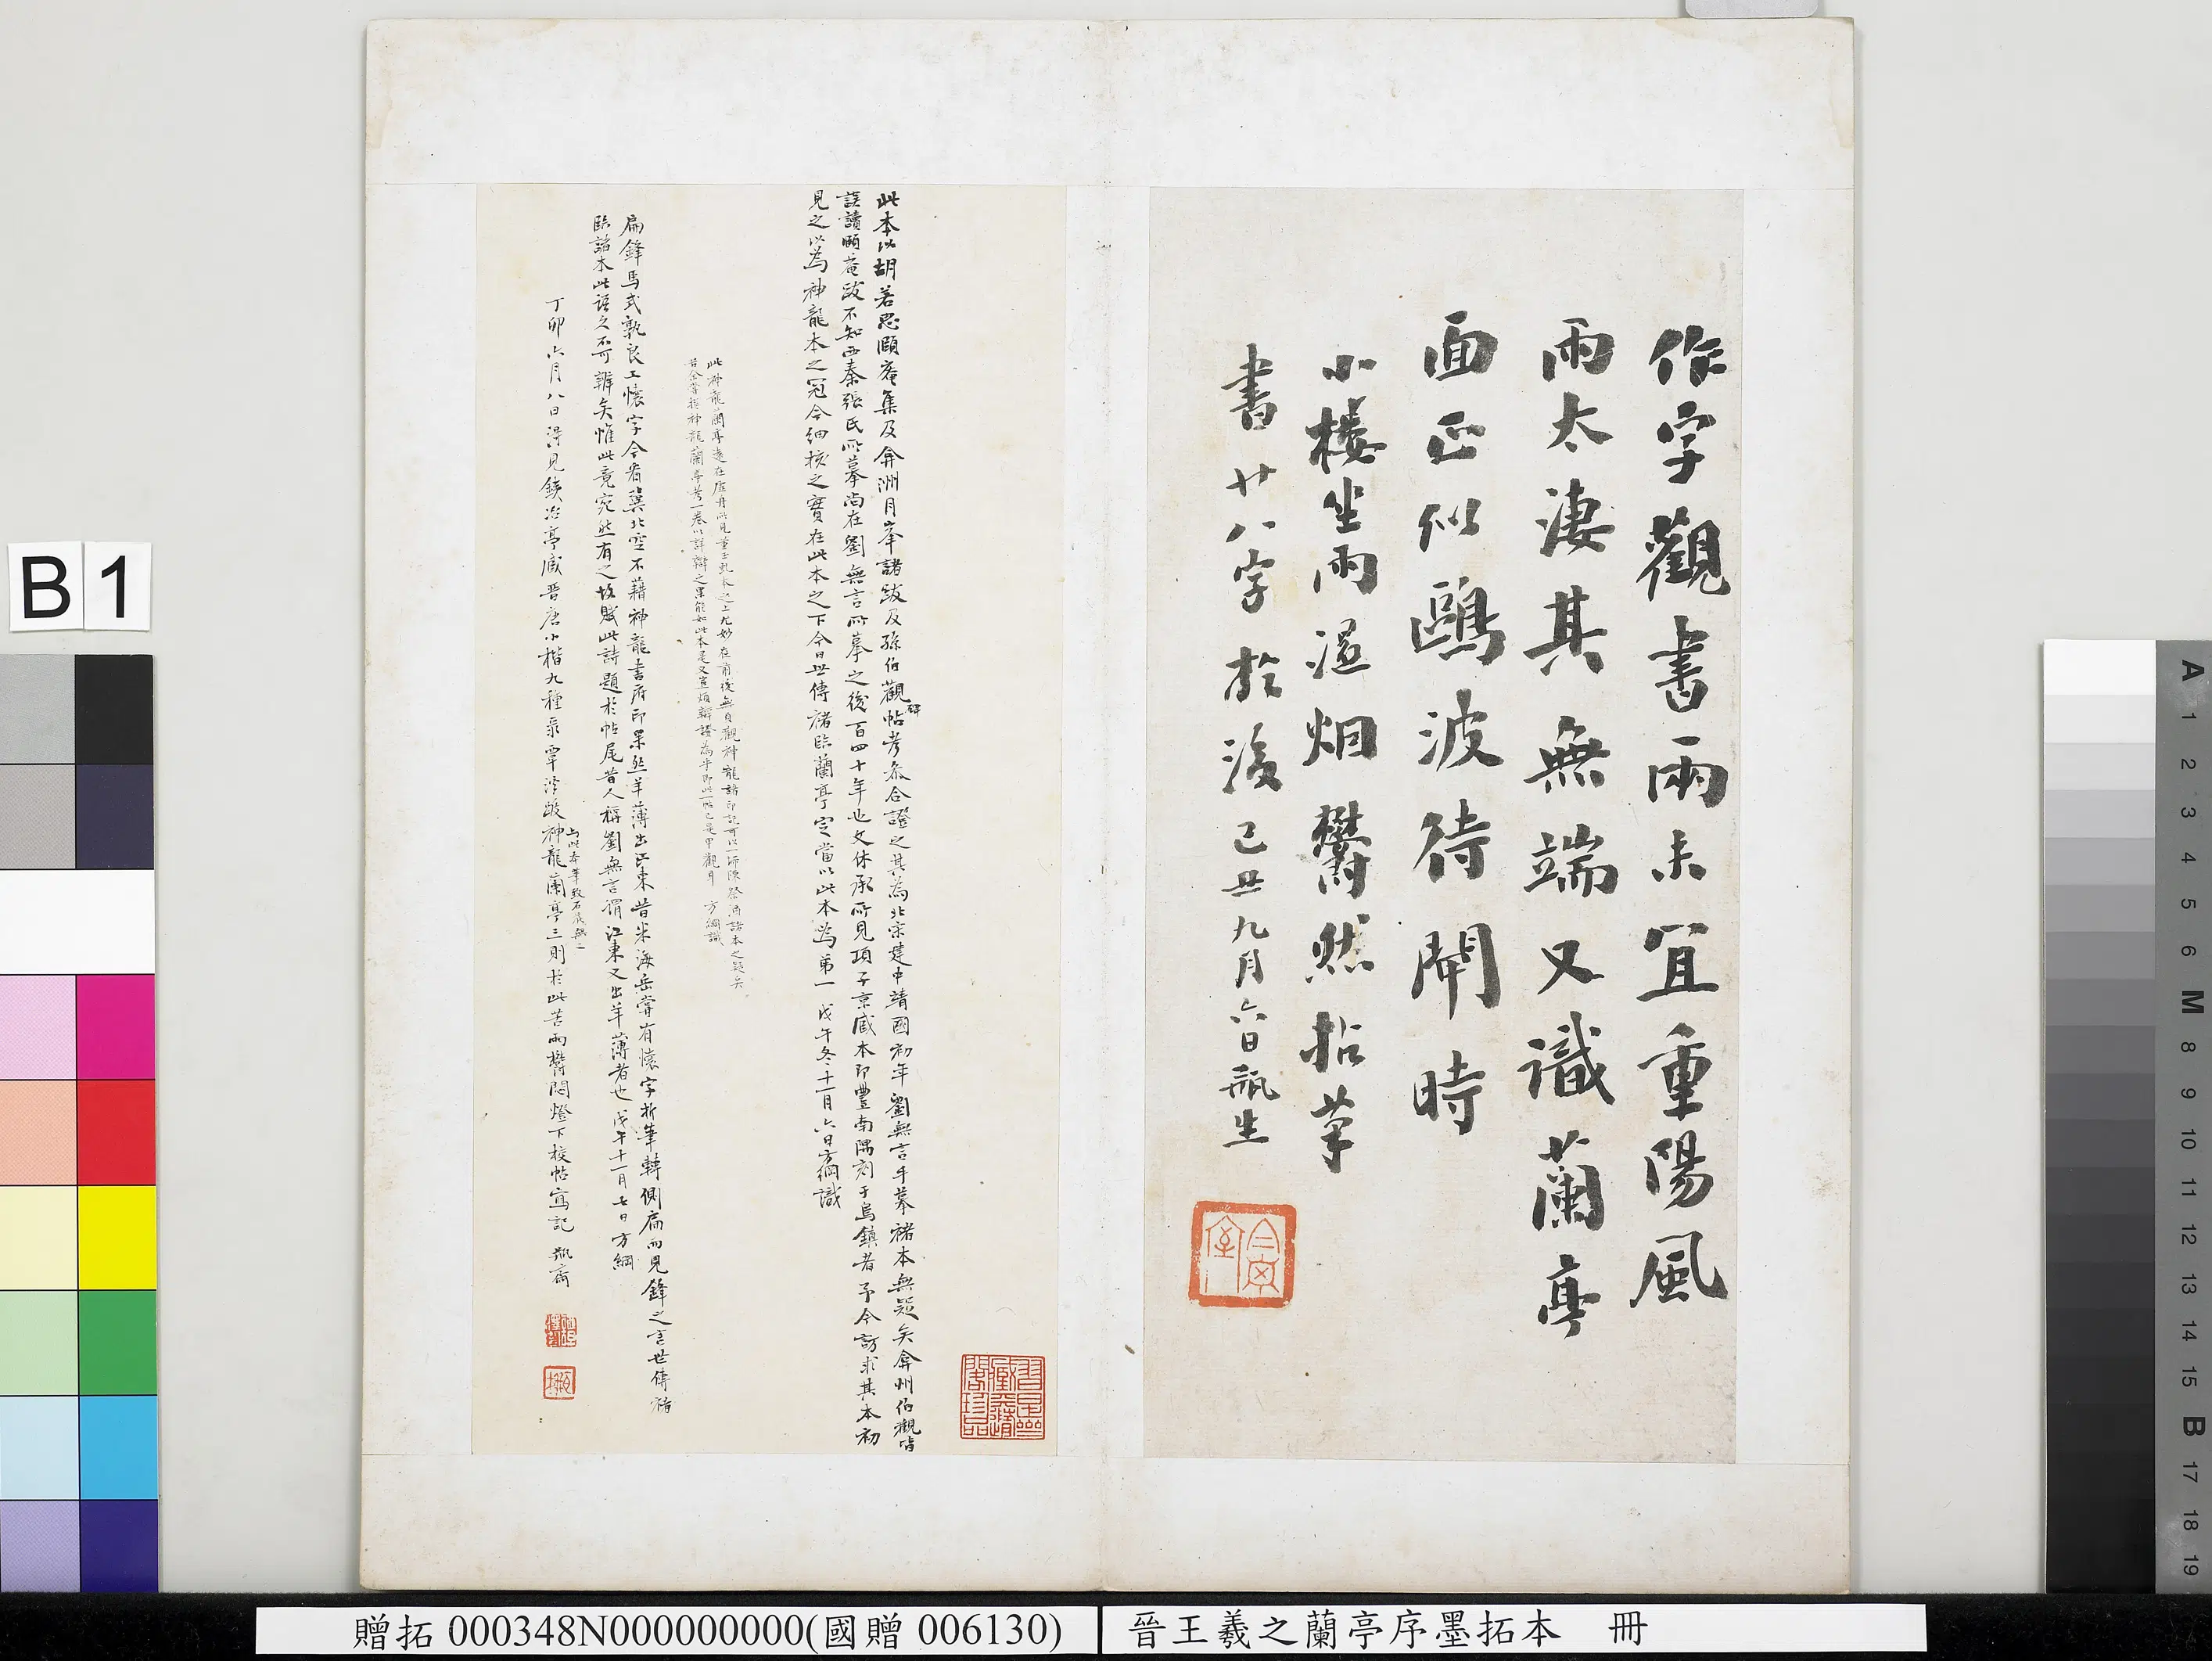 作字觀書雨未宜重陽風
雨太淒其無端又識蘭亭
面正似鷗波待開時
小樓坐雨溼烟鬱然拈筆
書廿八字於後己丑九月六日瓶生
此本以胡若思頤庵集及弇洲月峯諸跋及孫伯觀碑帖考參合證之其為北宋建中靖國初年劉無言手摹褚本無疑矣弇州伯觀皆
誤讀頤菴跋不知西秦張氏所摹尚在劉無言所摹之後百四十年也文休承所見項子京藏本即豐南隅刻于烏鎮者予今訪求其本初
見之以為神龍本之冠今細核之實在此本之下今日世傳褚臨蘭亭定當以此本為第一戊午冬十一月六日方綱識
此神龍蘭亭
昔余嘗撰神龍蘭亭考一卷以詳辯之果能如此本
方綱識
扁鋒馬式孰良工懷字今看冀北空不藉神龍書府印果然羊薄出江東昔米海岳嘗有懷字折筆轉側扁而見鋒之言世傳褚
臨諸本此語久不可辨矣惟此竟宛然有之故賦此詩題於帖尾昔人稱劉無言謂江東又出羊薄者也戊午十一月七日方綱
丁卯六月八日得見鐵冶亭藏晋唐小楷九種录覃溪跋神龍蘭亭三則於此苦雨鬱悶燈下校帖寫記 瓶齋
与此本筆致石泐無二
B 1
贈拓 000348N000000000(國贈 006130)
晉王羲之蘭亭序墨拓本 冊
A
1
2
3
4
5
6
M
8
9
10
11
12
13
14
15
B
17
18
19